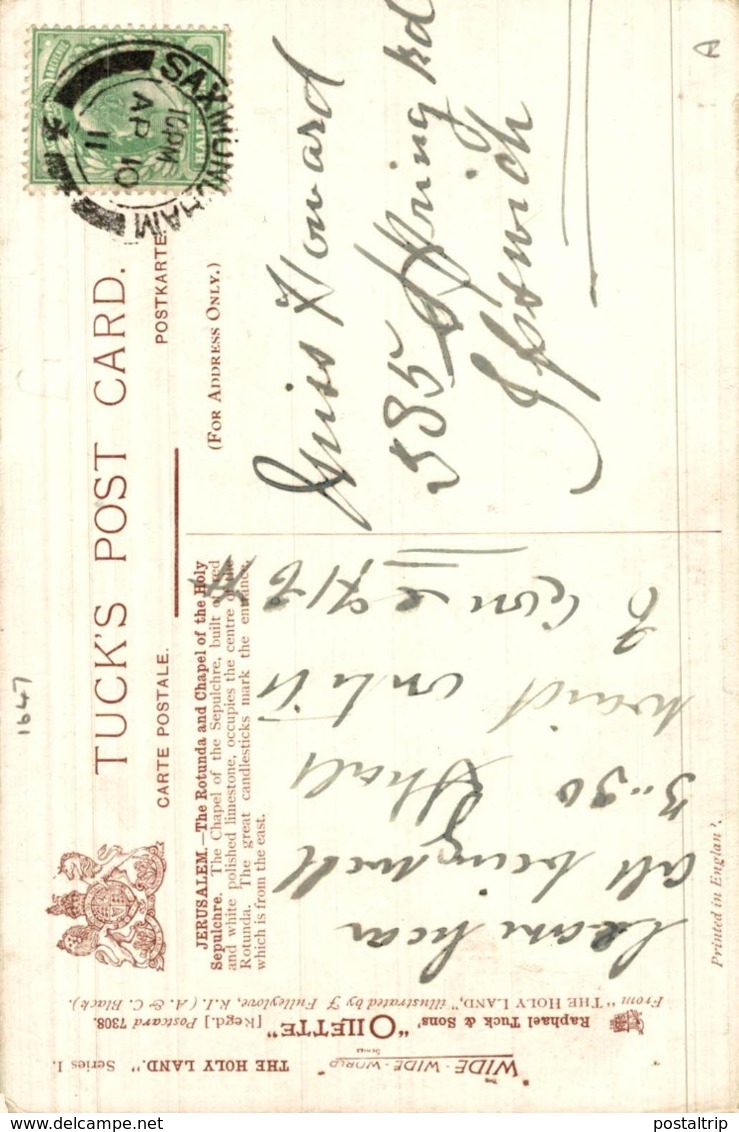 TUCK'S POST CARD.
CARTE POSTALE.
POSTKARTE
(FOR ADDRESS ONLY.)
SAXMUNDHAM
10PM
AP 10
11
Miss Howard
385 Spring Rd
Ipswich
A
1647
JERUSALEM.—The Rotunda and Chapel of the Holy
Sepulchre. The Chapel of the Sepulchre, built of red
and white polished limestone, occupies the centre of the
Rotunda. The great candlesticks mark the entrance,
which is from the east.
Leave hear
all being well
3..30 Shall
waid untill
Printed in England.
"WIDE-WIDE-WORLD"
SERIES
THE HOLY LAND." Series I.
Raphael Tuck & Sons' "OILETTE" [Regd.] Postcard 7308.
From "THE HOLY LAND," illustrated by J Fulleylove, R.I. (A. & C. Black).
postaltrip
www.postaltrip.com